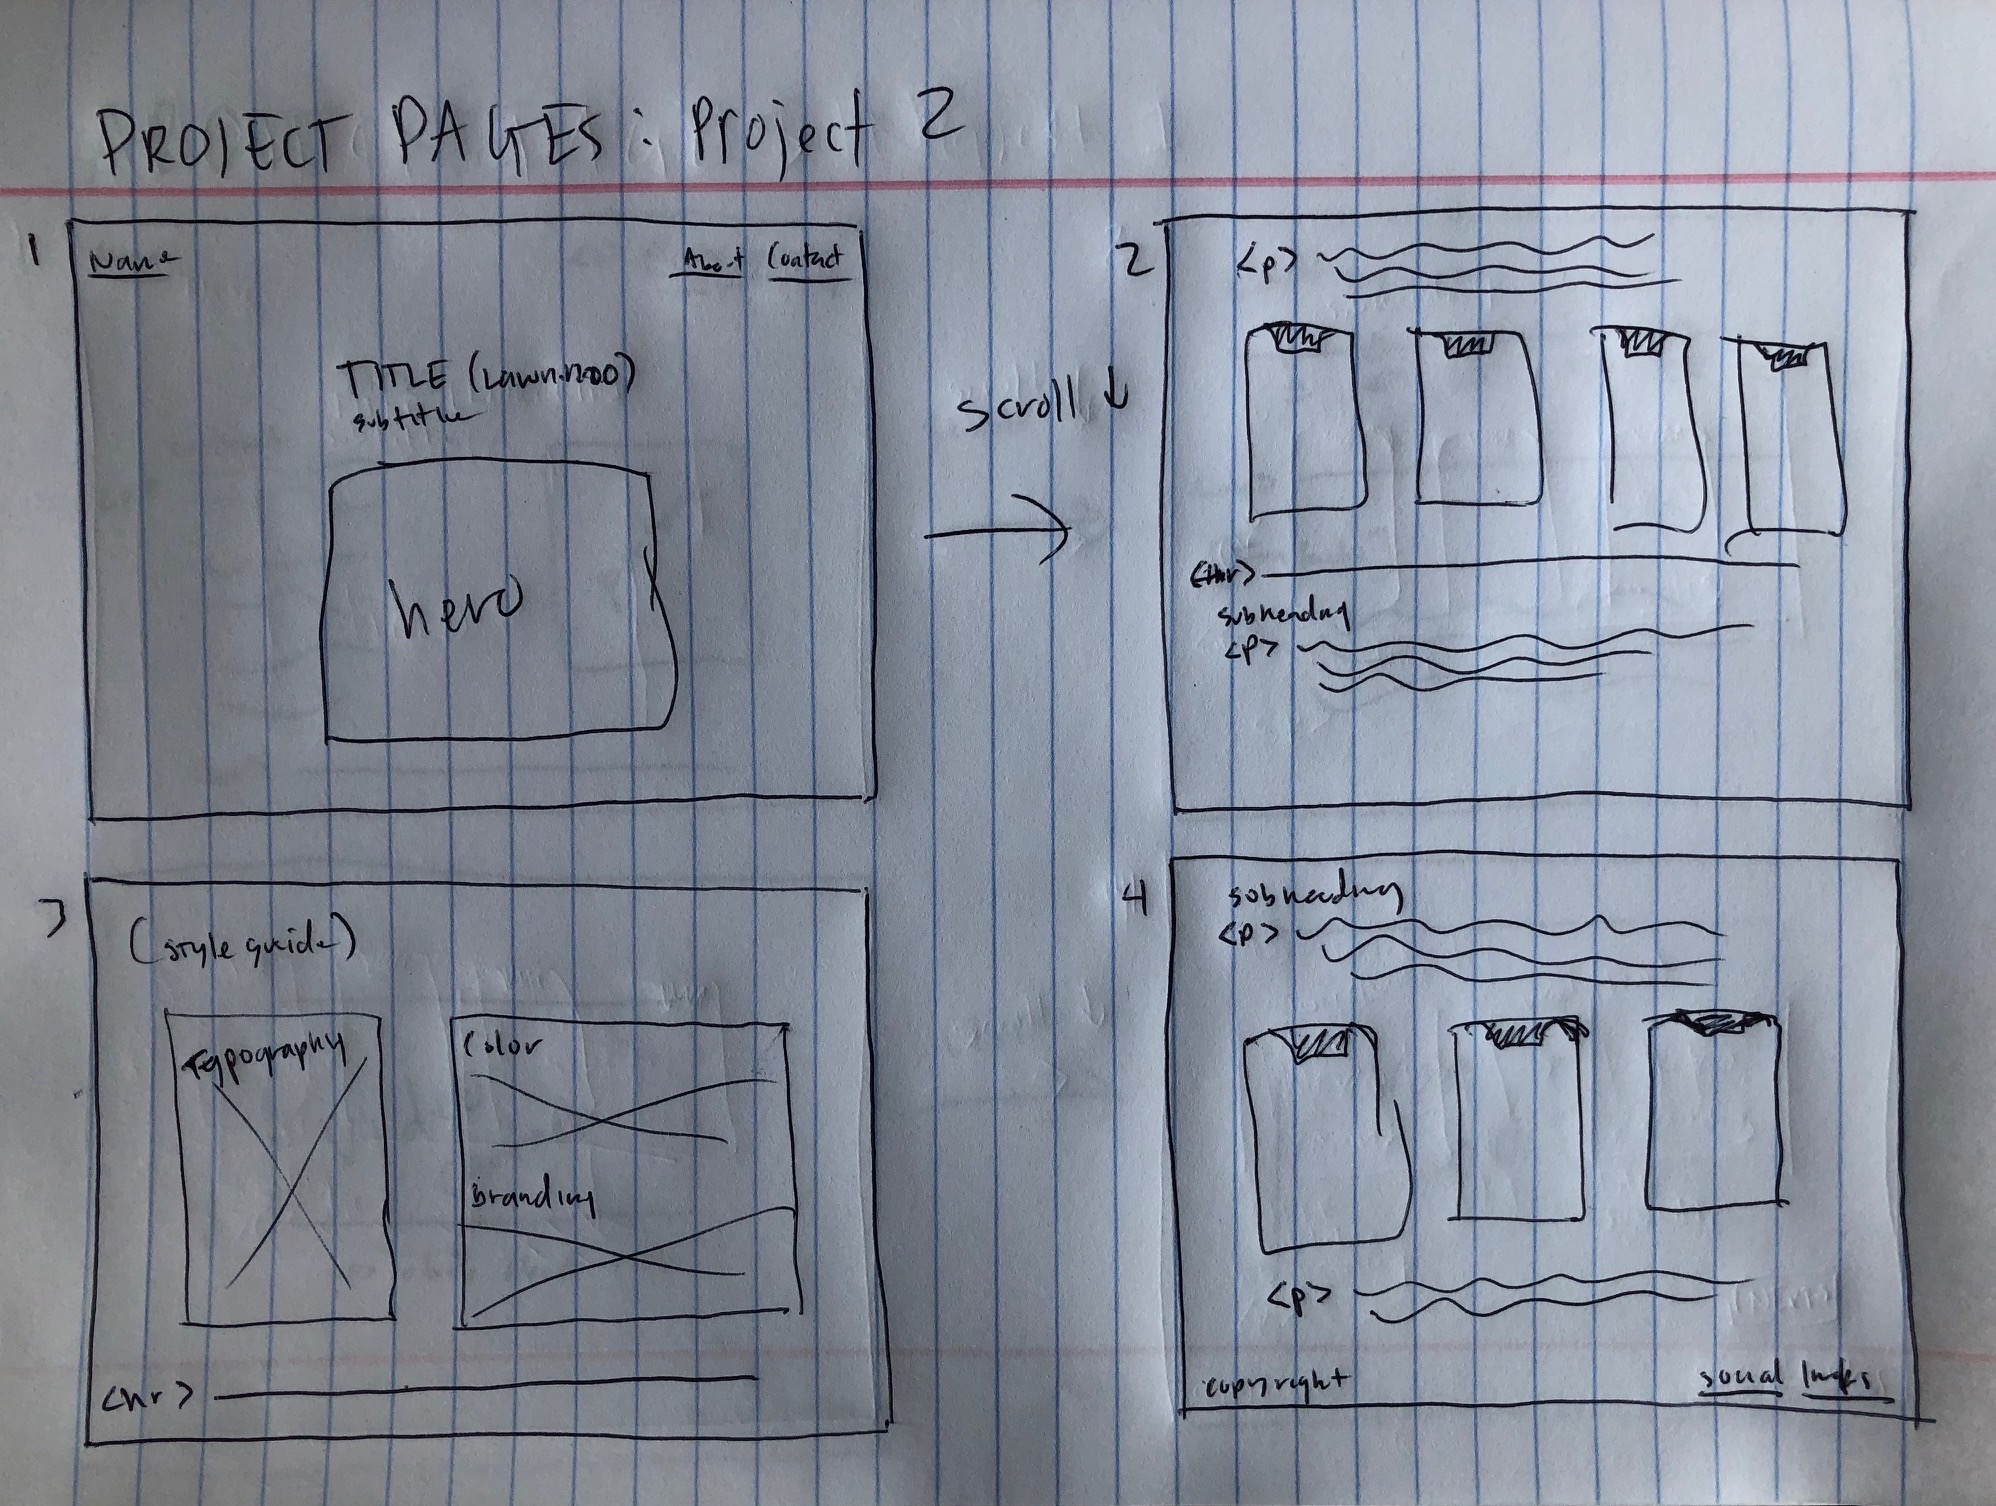 PROJECT PAGES: Project 2
1
Name
About Contact
TITLE (Lawn.1200)
subtitle
hero
scroll ↓
2
<p>
<hr>
subheading
<p>
3
(style guide)
Typography
Color
branding
<hr>
4
subheading
<p>
<p>
copyright
social links